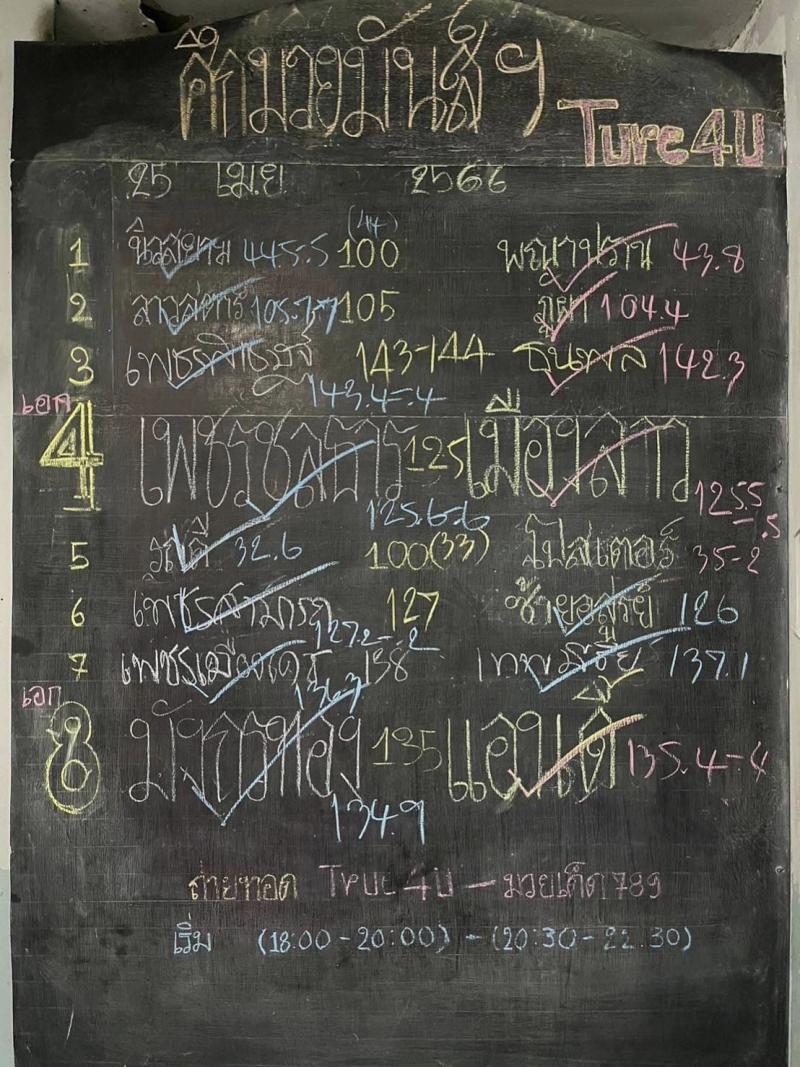 ศึกมวยมันส์ฯ
Ture 4U
25 เม.ย 2566
1 นิวสยาม 445.5 100 (44) พญาปราน 43.8
2 105.7-7 105 ภูผา 104.4
3 143-144 ธันพล 142.3
143.4-.4
เอก
4 เพชรชลธาร 125 เมืองลาว
125.6-.6 125.5-.5
5 32.6 100(33) โปสเตอร์ 35-2
6 เพชรสามารถ 127 126
127.2-.2
7 เพชรเมืองเดช 138 เทพมีชัย 137.1
136.7
เอก
8 มังกรทอง 135 แอนดี้ 135.4-4
134.9
ถ่ายทอด True 4U - มวยเด็ด 789
เริ่ม (18:00-20:00) - (20:30-22.30)